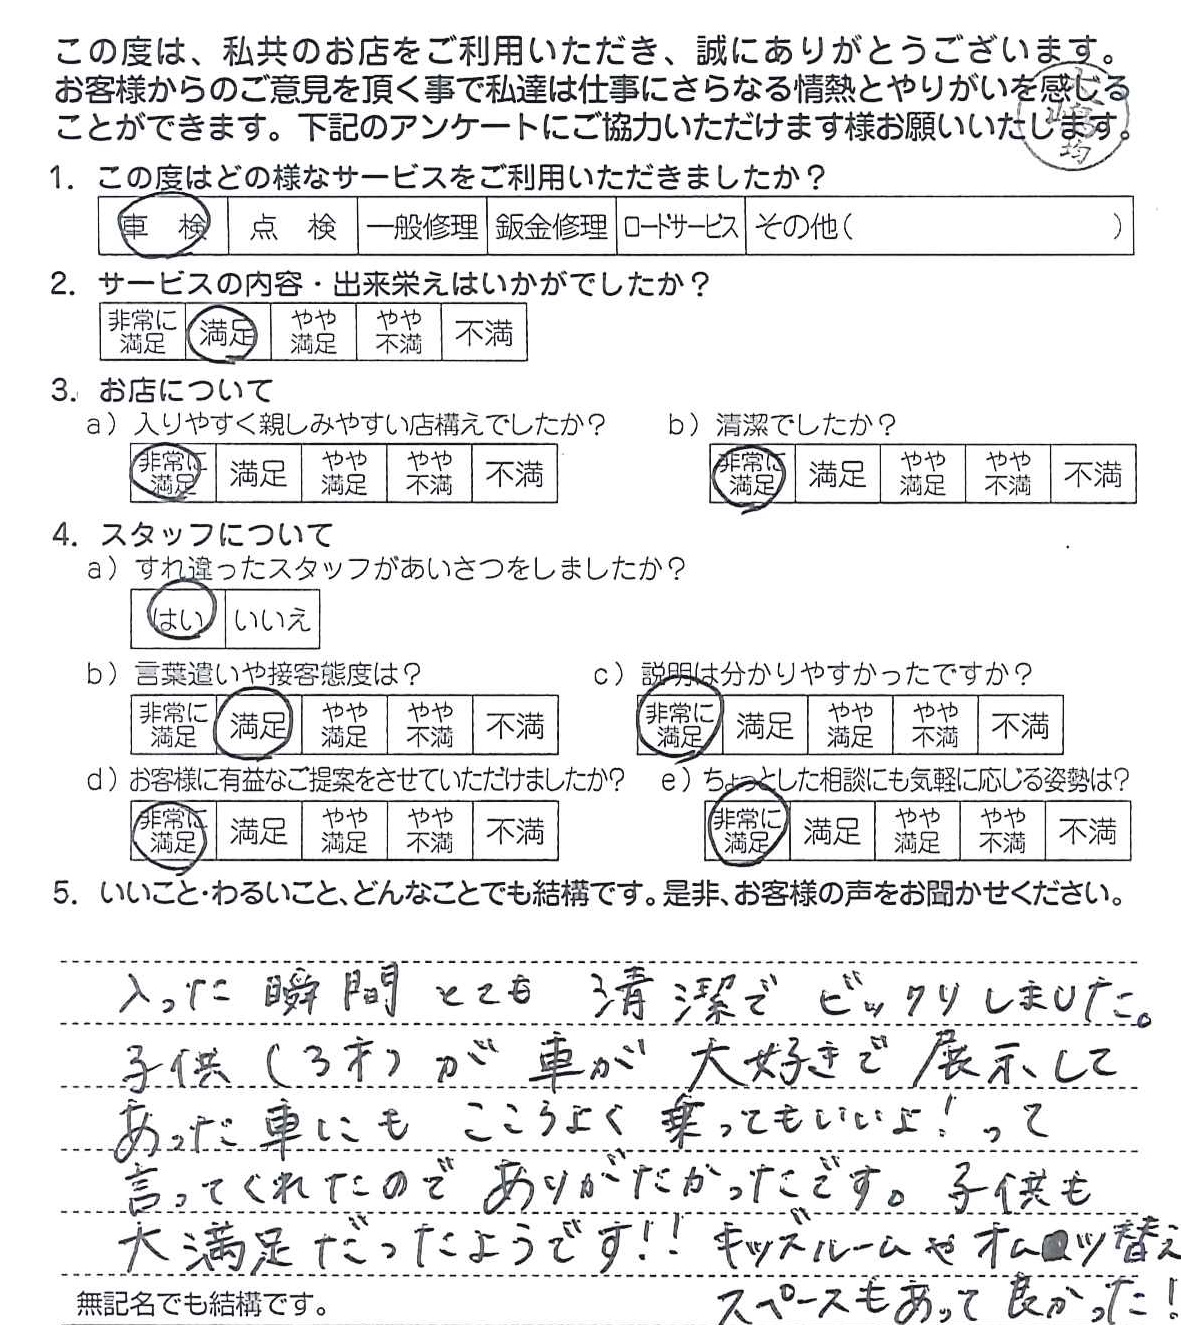 この度は、私共のお店をご利用いただき、誠にありがとうございます。
お客様からのご意見を頂く事で私達は仕事にさらなる情熱とやりがいを感じる
ことができます。下記のアンケートにご協力いただけます様お願いいたします。
均
1. この度はどの様なサービスをご利用いただきましたか？
車 検 点 検 一般修理 鈑金修理 ロードサービス その他( )
2. サービスの内容・出来栄えはいかがでしたか？
非常に満足 満足 やや満足 やや不満 不満
3. お店について
a) 入りやすく親しみやすい店構えでしたか？ b) 清潔でしたか？
非常に満足 満足 やや満足 やや不満 不満 非常に満足 満足 やや満足 やや不満 不満
4. スタッフについて
a) すれ違ったスタッフがあいさつをしましたか？
はい いいえ
b) 言葉遣いや接客態度は？ c) 説明は分かりやすかったですか？
非常に満足 満足 やや満足 やや不満 不満 非常に満足 満足 やや満足 やや不満 不満
d) お客様に有益なご提案をさせていただけましたか？ e) ちょっとした相談にも気軽に応じる姿勢は？
非常に満足 満足 やや満足 やや不満 不満 非常に満足 満足 やや満足 やや不満 不満
5. いいこと・わるいこと、どんなことでも結構です。是非、お客様の声をお聞かせください。
入った瞬間とても清潔でビックリしました。
子供(3才)が車が大好きで展示して
あった車にもこころよく乗ってもいいよ！って
言ってくれたのでありがたかったです。子供も
大満足だったようです!! キッズルームやオムツ替え
スペースもあって良かった！
無記名でも結構です。